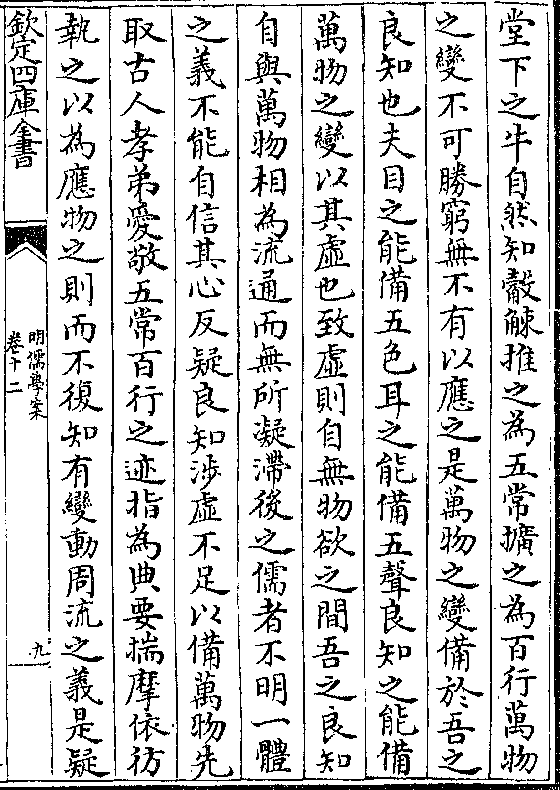 堂下之牛自然知觳觫推之為五常擴之為百行萬物
之變不可勝窮無不有以應之是萬物之變備於吾之
良知也夫目之能備五色耳之能備五聲良知之能備
萬物之變以其虛也致虛則自無物欲之間吾之良知
自與萬物相為流通而無所凝滯後之儒者不明一體
之義不能自信其心反疑良知涉虛不足以備萬物先
取古人孝弟愛敬五常百行之迹指為典要揣摩依彷
執之以為應物之則而不復知有變動周流之義是疑
欽定四庫全書
明儒學案
卷十二
九